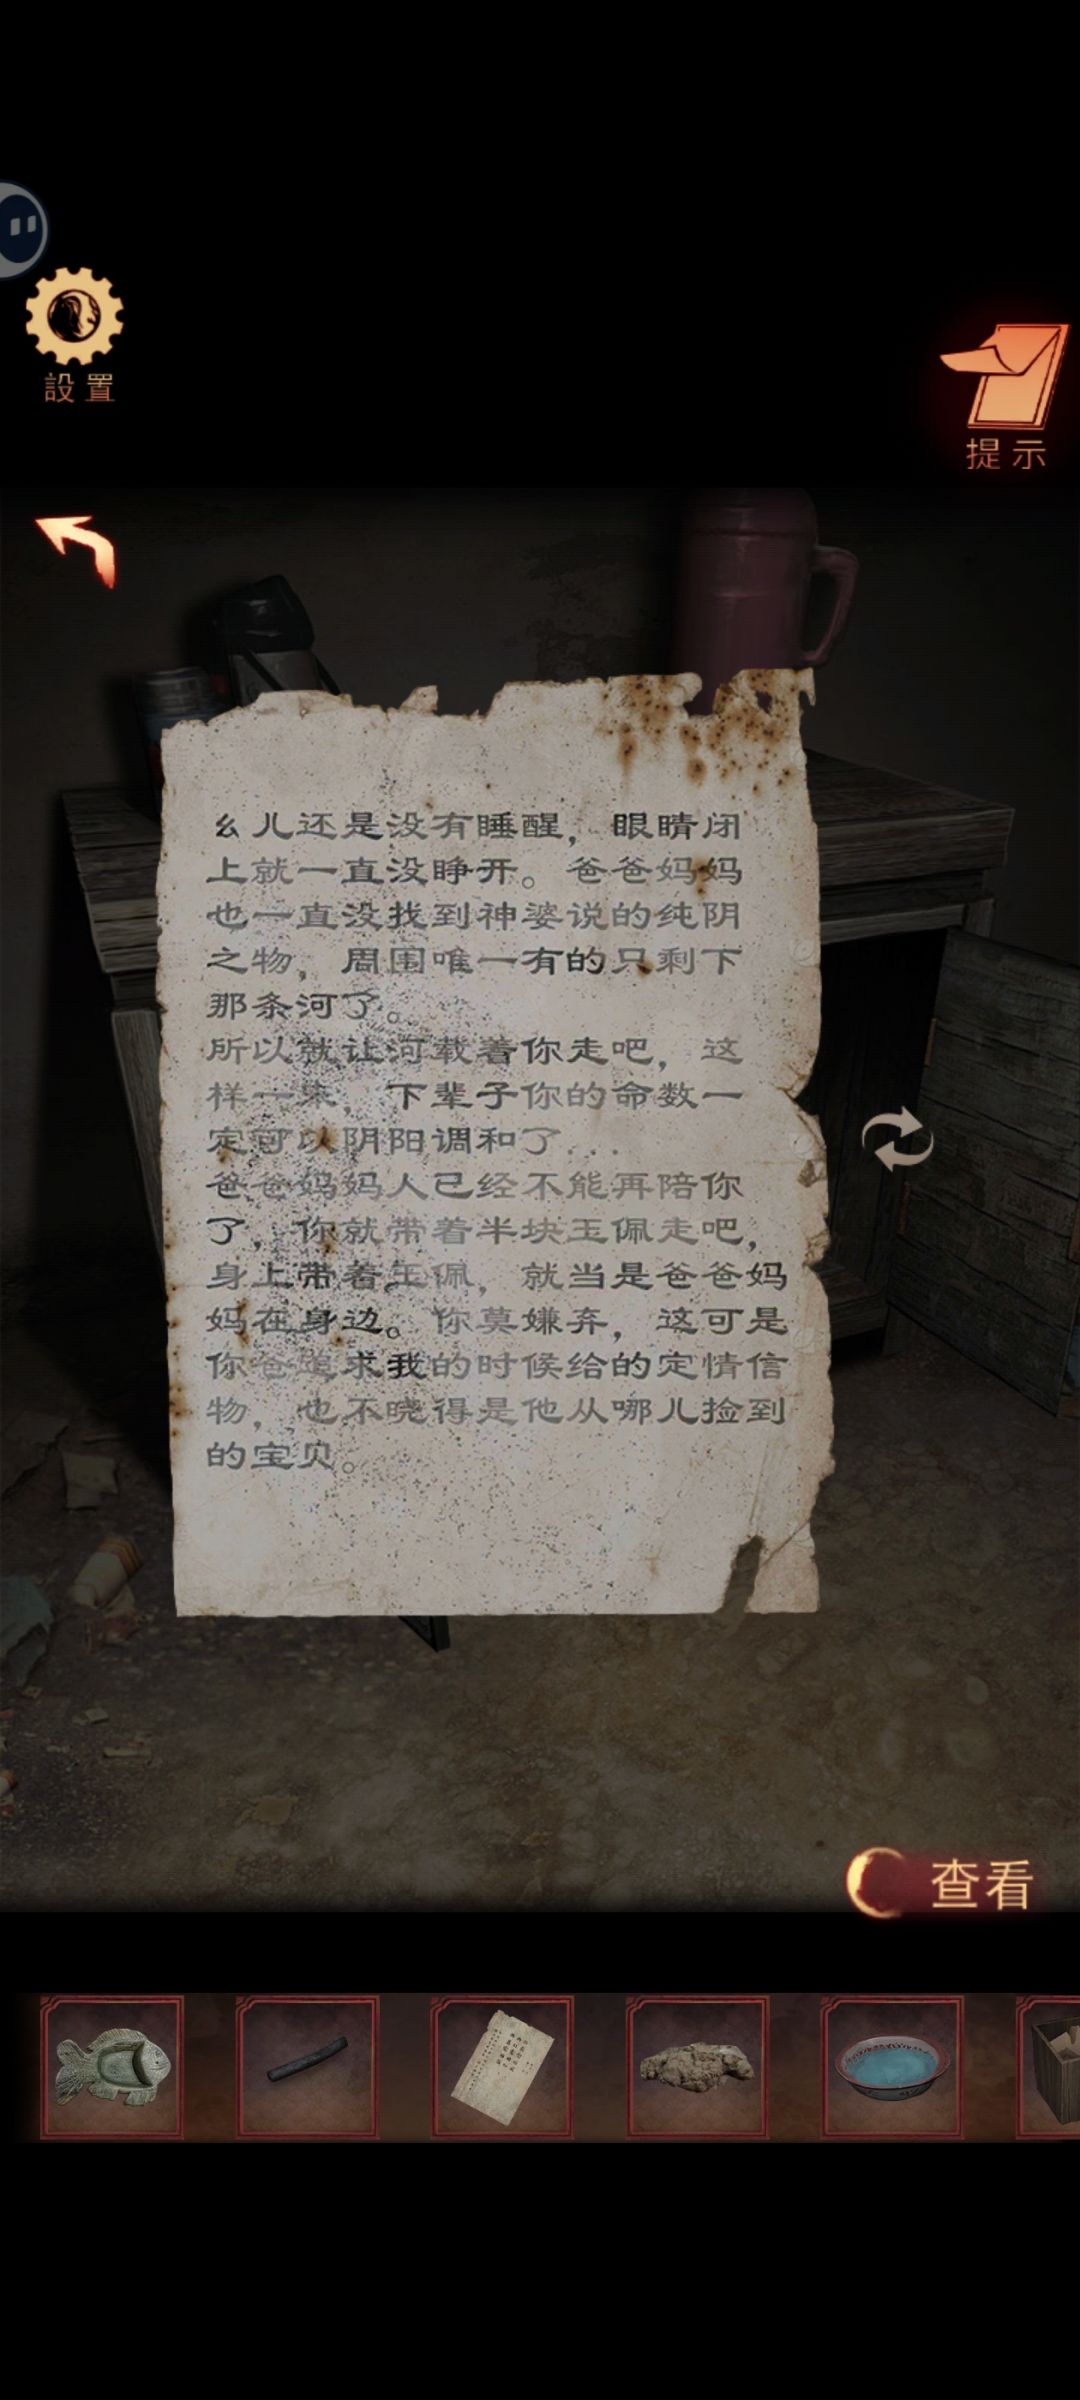 設置
提示
幺儿还是没有睡醒，眼睛闭
上就一直没睁开。爸爸妈妈
也一直没找到神婆说的纯阴
之物，周围唯一有的只剩下
那条河了。
所以就让河载着你走吧，这
样一来，下辈子你的命数一
定可以阴阳调和了...
爸爸妈妈人已经不能再陪你
了，你就带着半块玉佩走吧，
身上带着玉佩，就当是爸爸妈
妈在身边。你莫嫌弃，这可是
你爸追求我的时候给的定情信
物，也不晓得是他从哪儿捡到
的宝贝。
查看